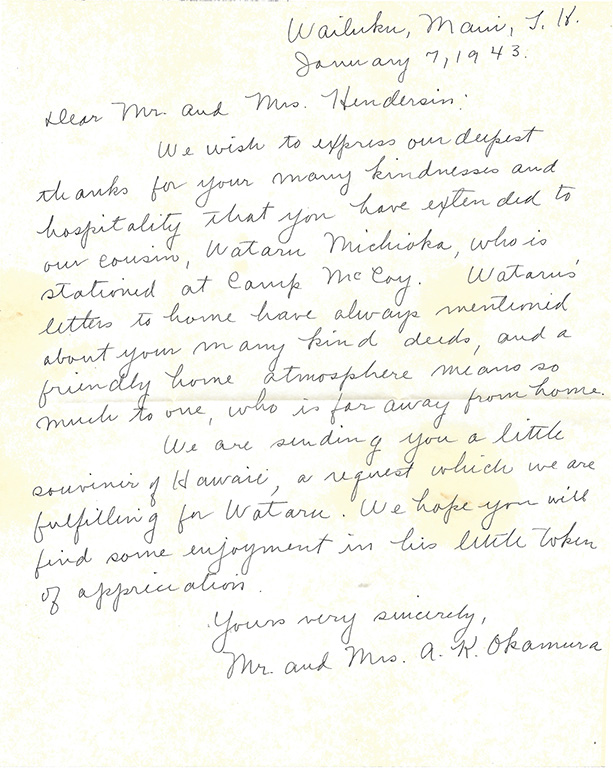 Wailuku, Maui, T. H.
January 7, 1943.
Dear Mr. and Mrs. Hendersin:
We wish to express our deepest
thanks for your many kindnesses and
hospitality that you have extended to
our cousin, Wataru Michioka, who is
stationed at Camp McCoy. Watarus'
letters to home have always mentioned
about your many kind deeds, and a
friendly home atmosphere means so
much to one, who is far away from home.
We are sending you a little
souvenir of Hawaii, a request which we are
fulfilling for Wataru. We hope you will
find some enjoyment in his little token
of appriciation.
Yours very sincerely,
Mr. and Mrs. A. K. Okamura